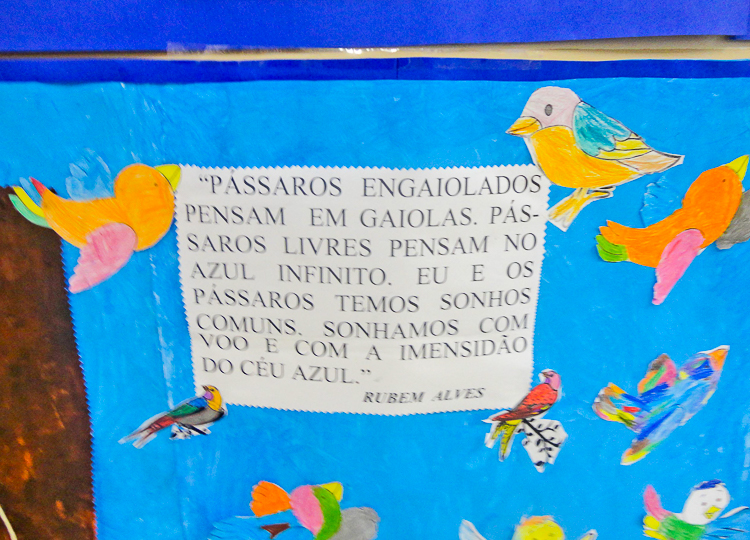 “PÁSSAROS ENGAIOLADOS
PENSAM EM GAIOLAS. PÁS-
SAROS LIVRES PENSAM NO
AZUL INFINITO. EU E OS
PÁSSAROS TEMOS SONHOS
COMUNS. SONHAMOS COM
VOO E COM A IMENSIDÃO
DO CÉU AZUL.”
RUBEM ALVES